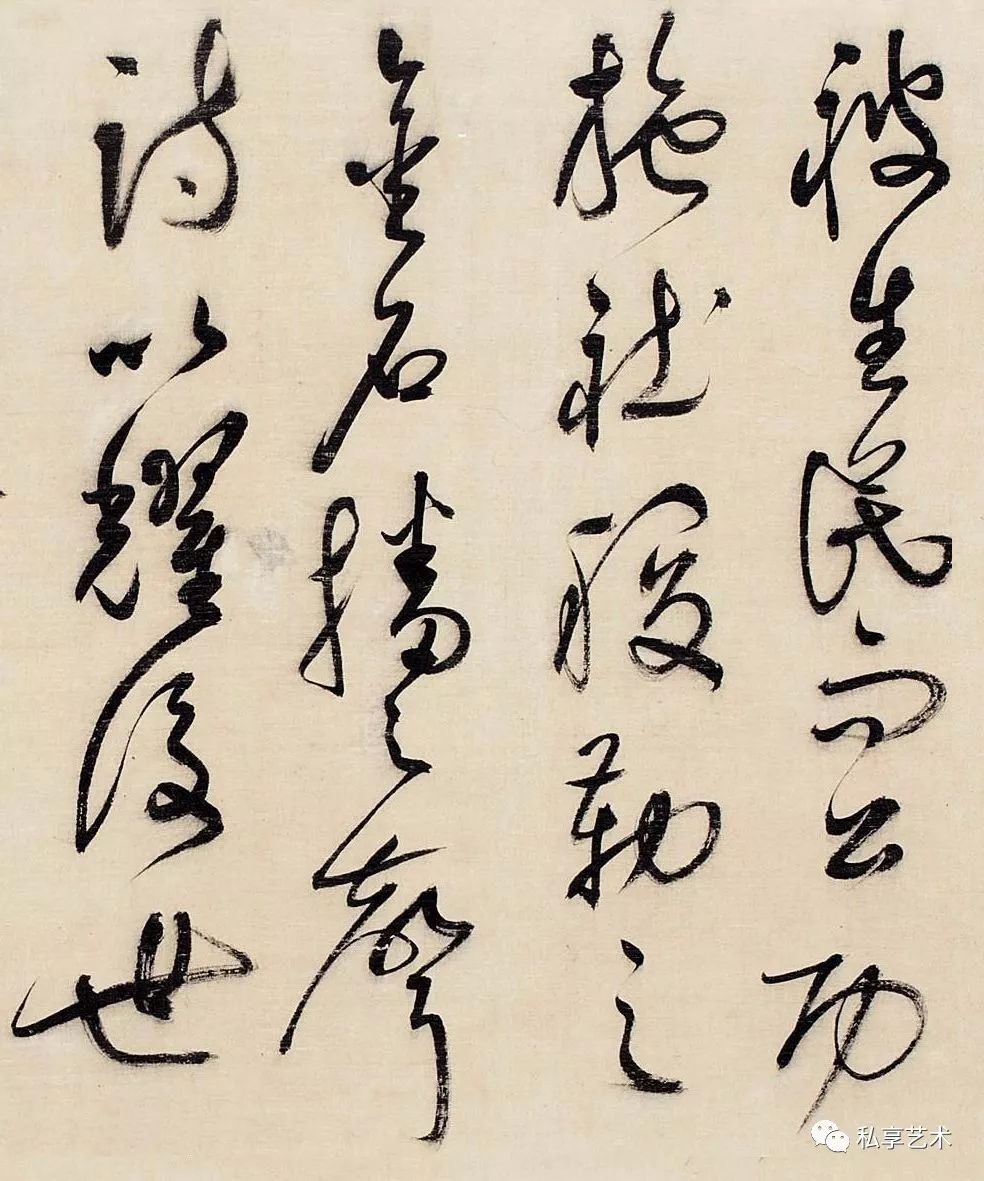 被生民而公功
施社稷勒之
金石播之聲
詩以耀後世
私享艺术